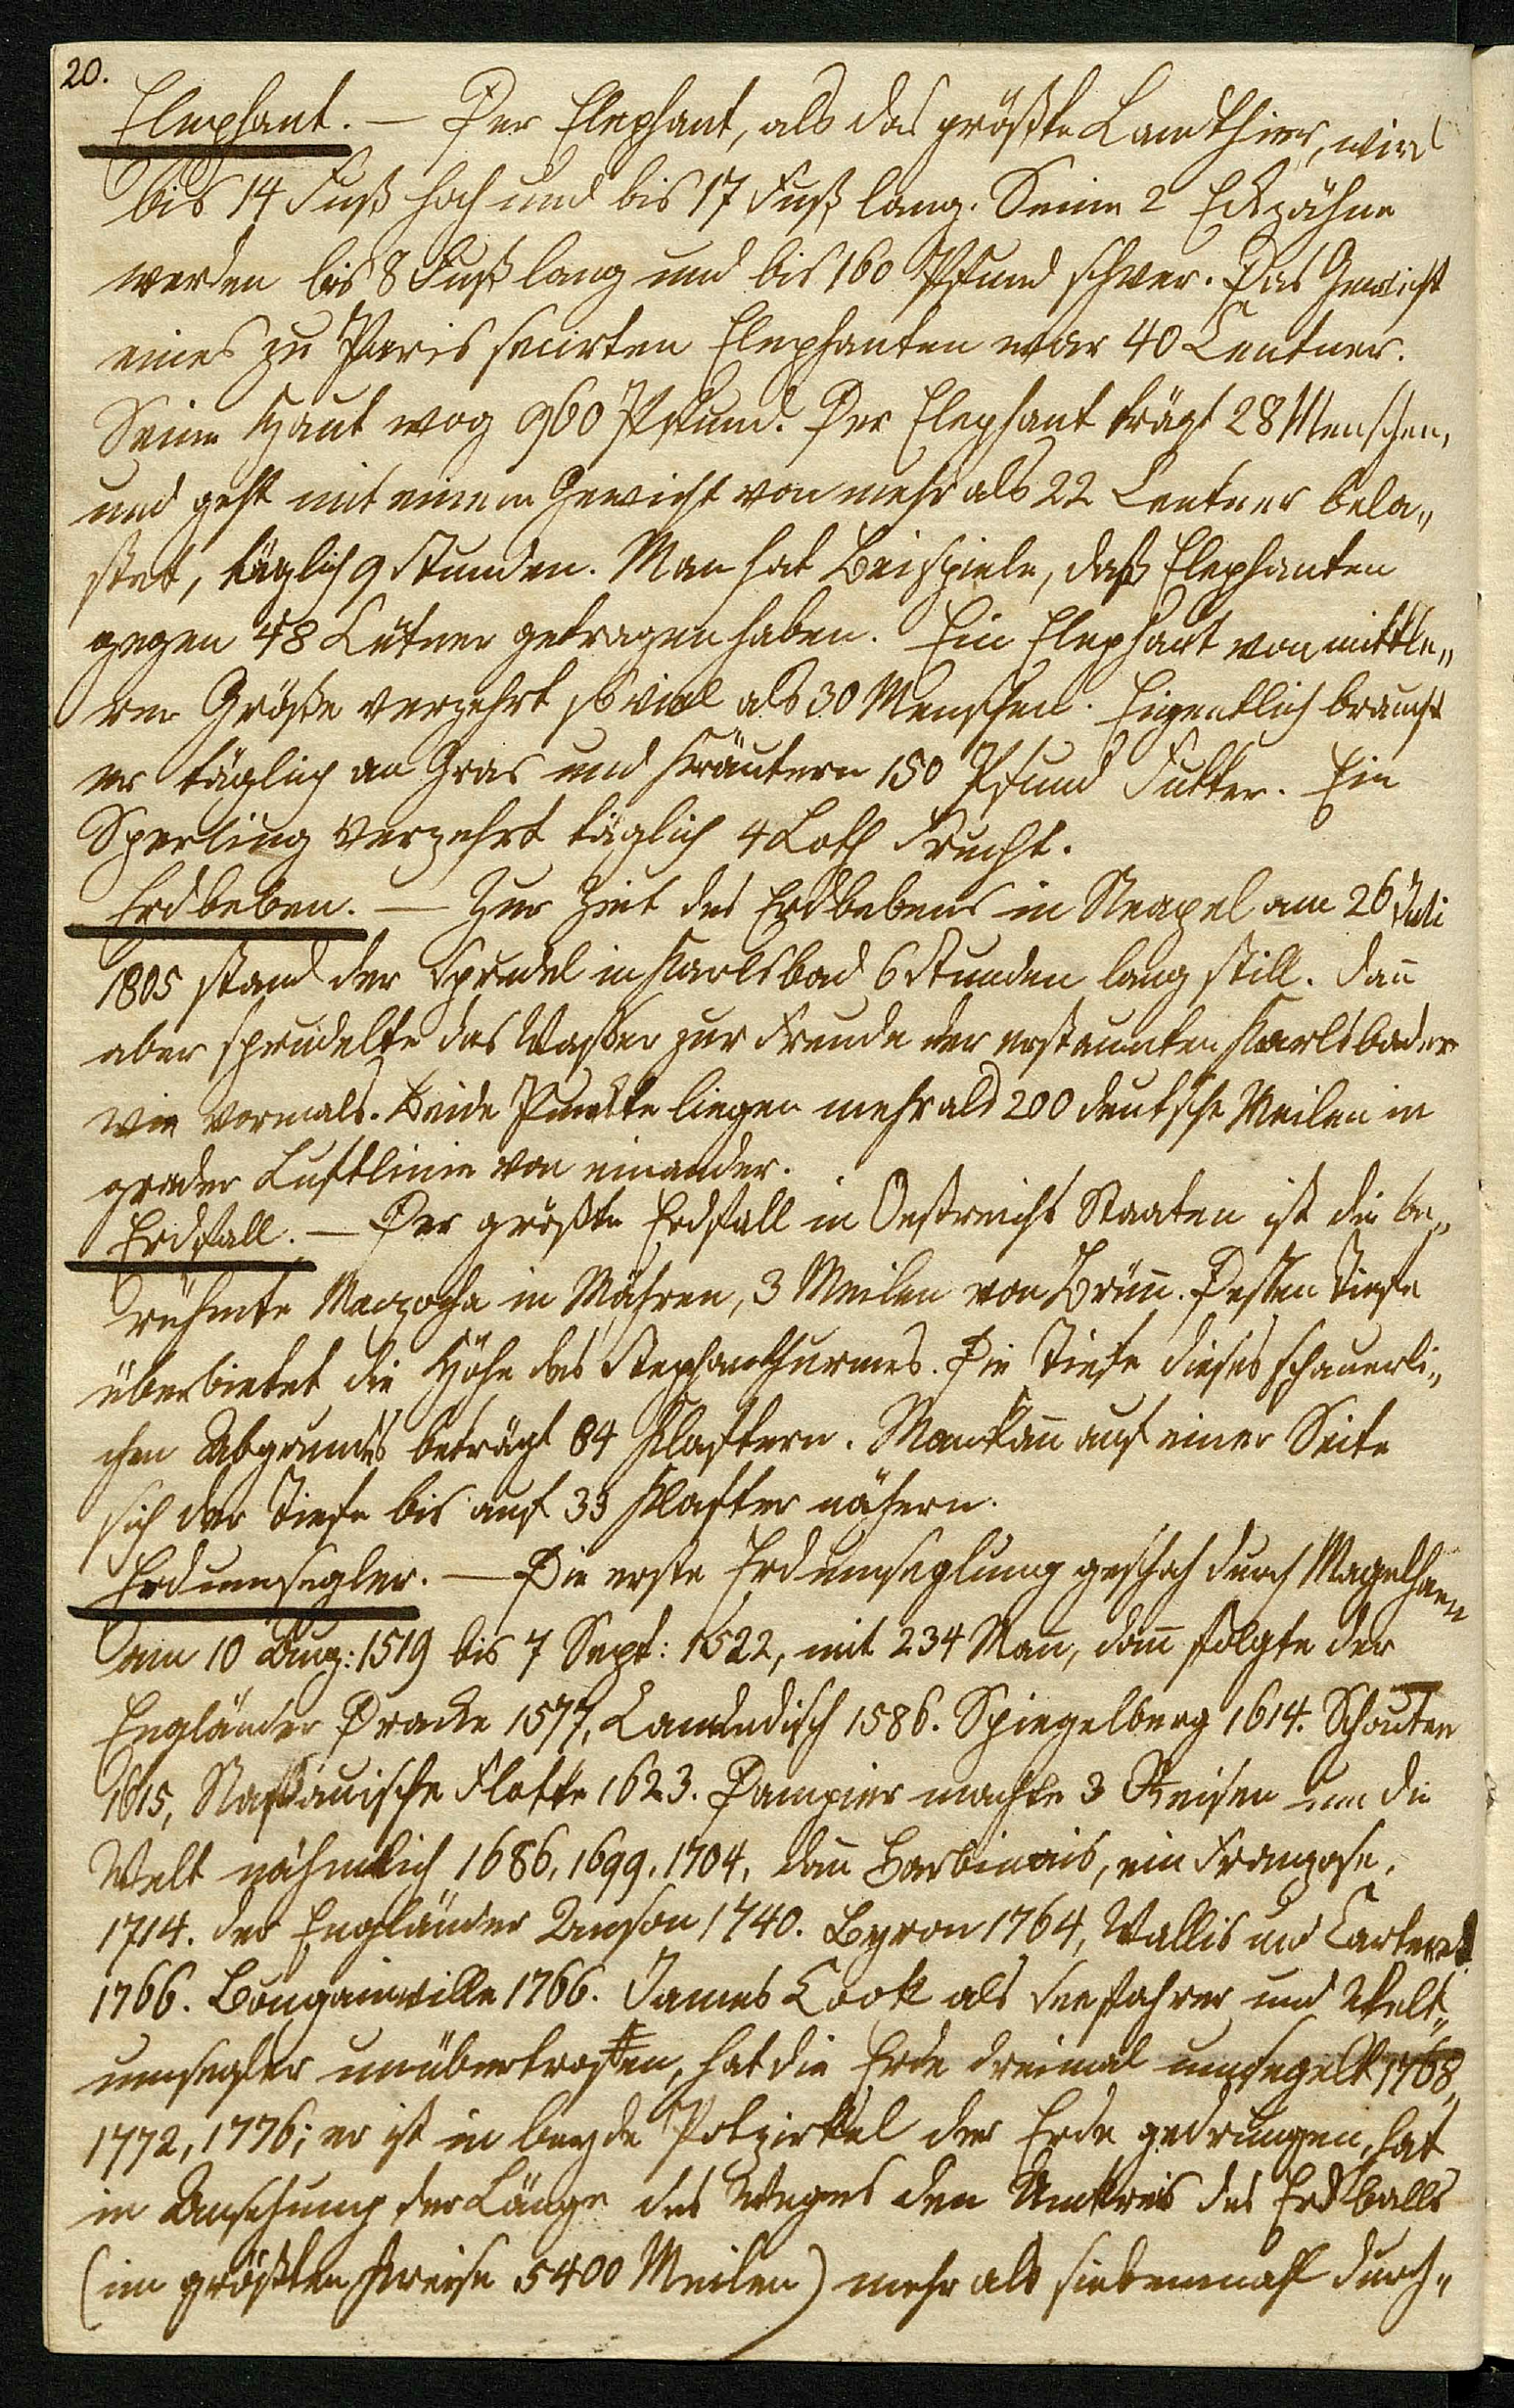 20.
Elephant. — Der Elephant, als das größte Landthier, wird
bis 14 Fuß hoch und bis 17 Fuß lang. Seine 2 Eckzähne
werden bis 8 Fuß lang und bis 160 Pfund schwer. Das Gewicht
eines zu Paris secirten Elephanten war 40 Centner.
Seine Haut wog 960 Pfund. Der Elephant trägt 28 Menschen,
und geht mit einem Gewicht von mehr als 22 Centner bela„
stet, täglich 9 Stunden. Man hat Beispiele, daß Elephanten
gegen 48 Centner getragen haben. Ein Elephant von mittle„
rer Größe verzehrt so viel als 30 Menschen. Eigentlich braucht
er täglich an Gras und Kräutern 150 Pfund Futter. Ein
Sperling verzehrt täglich 4 Loth Frucht.
Erdbeben. — Zur Zeit des Erdbebens in Neapel am 26 Juli
1805 stand der Sprudel in Karlsbad 6 Stunden lang still. Dan̄
aber sprudelte das Wasser zur Freude der erstaunten Karlsbader
wie vormals. Beide Punkte liegen mehr als 200 deutsche Meilen in
grader Luftlinie von einander.
Erdfall. — Der größte Erdfall in Oestreichs Staaten ist die be„
rühmte Mazocha in Mähren, 3 Meilen von Brün̄. Dessen Tiefe
überbietet die Höhe des Stephansthurmes. Die Tiefe dieses schauerli„
chen Abgrunds beträgt 84 Klaftern. Man kan̄ auf einer Seite
sich der Tiefe bis auf 33 Klafter nähern.
Erdumsegler. — Die erste Erdumseglung geschah durch Magelhaen
am 10 Aug: 1519 bis 7 Sept: 1522, mit 234 Man̄, dan̄ folgte der
Engländer Dracke 1577, Camendisch 1586. Spiegelberg 1614. Schouten
1615, Nassauische Flotte 1623. Dampier machte 3 Reisen um die
Welt nähmlich 1686, 1699, 1704, dan̄ Barbinais, ein Franzose,
1714. der Engländer Anson 1740. Byron 1764, Wallis und Carteret
1766. Bougainville 1766. James Cook als Seefahrer und Welt„
umsegler unübertroffen, hat die Erde dreimal umsegelt 1768,
1772, 1776; er ist in beyde Polzirkel der Erde gedrungen, hat
in Ansehung der Länge des Weges den Umkreis des Erdballs
(im größten Kreise 5400 Meilen) mehr als siebenmahl durch„